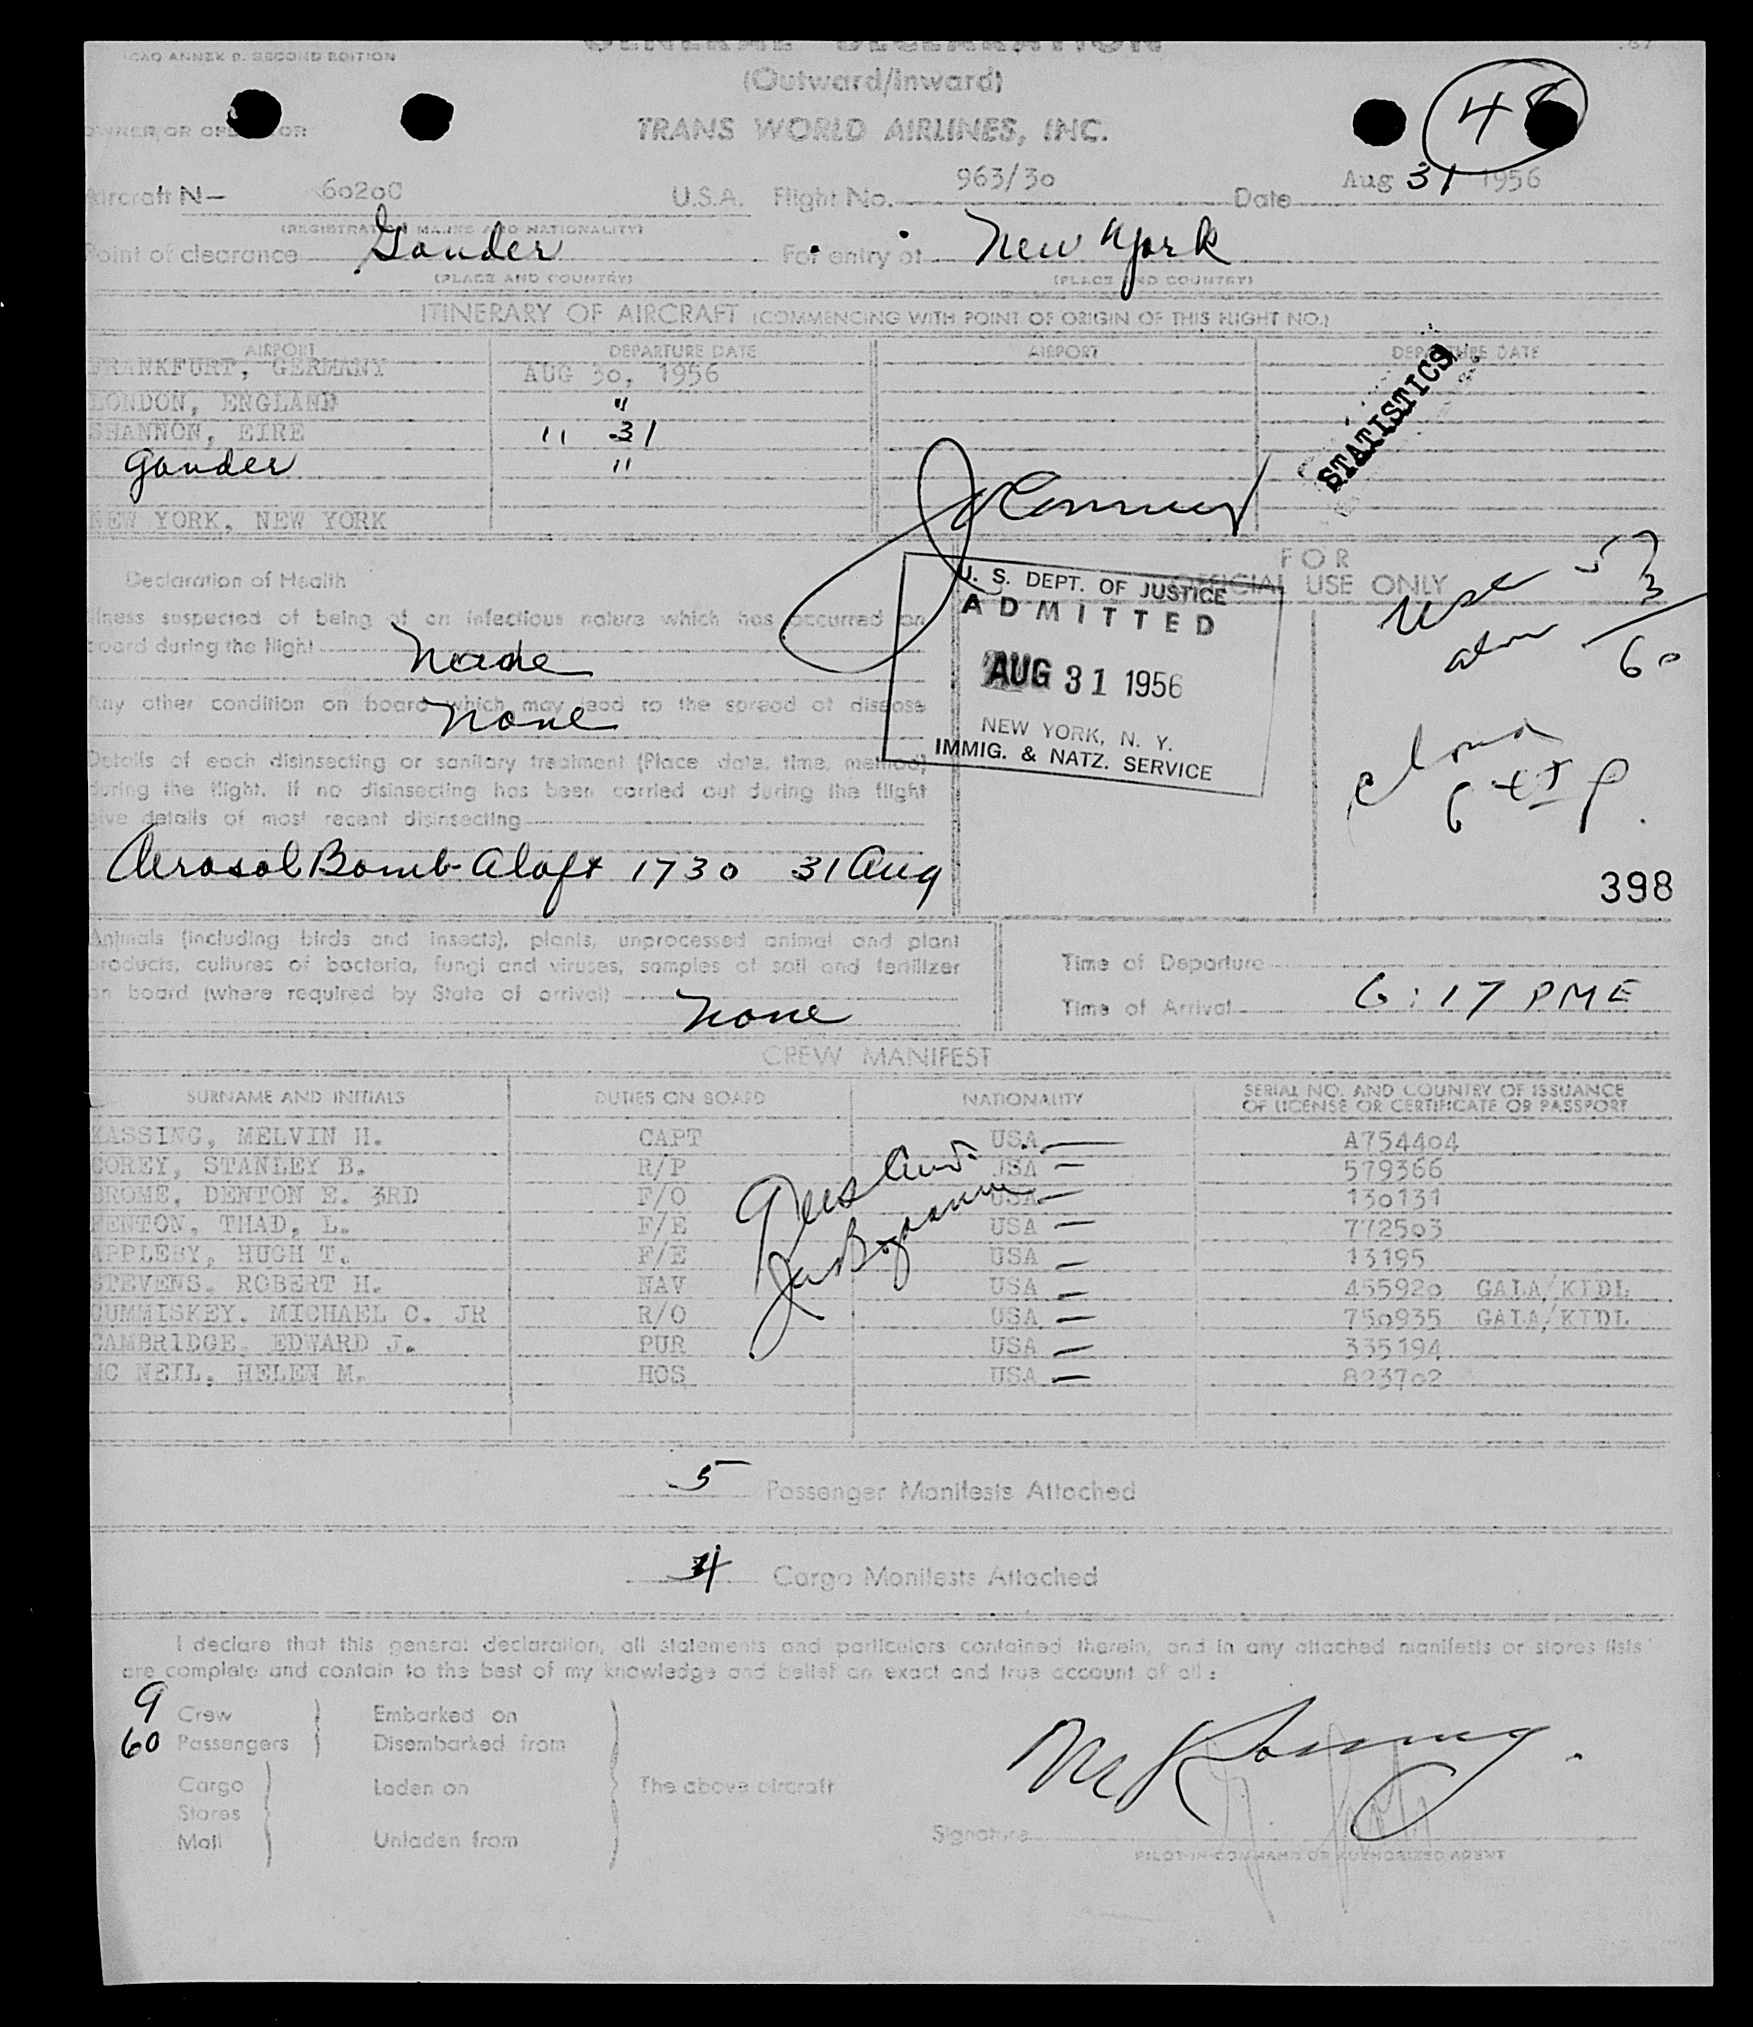 ICAO ANNEX 9, SECOND EDITION
GENERAL DECLARATION
(Outward/Inward)
OWNER OR OPERATOR
TRANS WORLD AIRLINES, INC.
Aircraft N- 6020C U.S.A. Flight No. 963/30 Date Aug 31 1956
(REGISTRATION MARKS AND NATIONALITY)
Point of clearance Gander For entry at New York
(PLACE AND COUNTRY) (PLACE AND COUNTRY)
ITINERARY OF AIRCRAFT (COMMENCING WITH POINT OF ORIGIN OF THIS FLIGHT NO.)
AIRPORT DEPARTURE DATE AIRPORT DEPARTURE DATE
FRANKFURT, GERMANY AUG 30, 1956
LONDON, ENGLAND "
SHANNON, EIRE " 31
Gander "
NEW YORK, NEW YORK
STATISTICS
Declaration of Health
FOR
OFFICIAL USE ONLY
Illness suspected of being of an infectious nature which has occurred on
board during the flight None
Any other condition on board which may lead to the spread of disease
None
U. S. DEPT. OF JUSTICE
ADMITTED
AUG 31 1956
NEW YORK, N. Y.
IMMIG. & NATZ. SERVICE
60
Details of each disinsecting or sanitary treatment (Place date, time, method)
during the flight. If no disinsecting has been carried out during the flight
give details of most recent disinsecting
Aerosol Bomb Aloft 1730 31 Aug
398
Animals (including birds and insects), plants, unprocessed animal and plant
products, cultures of bacteria, fungi and viruses, samples of soil and fertilizer
on board (where required by State of arrival) None
Time of Departure
Time of Arrival 6:17 PME
CREW MANIFEST
SURNAME AND INITIALS DUTIES ON BOARD NATIONALITY SERIAL NO. AND COUNTRY OF ISSUANCE
OF LICENSE OR CERTIFICATE OR PASSPORT
KASSING, MELVIN H. CAPT USA A754404
COREY, STANLEY B. R/P USA 579366
BROME, DENTON E. 3RD F/O USA 130131
FENTON, THAD, L. F/E USA 772503
APPLEBY, HUGH T. F/E USA 13195
STEVENS, ROBERT H. NAV USA 455920 GALA/KIDL
CUMMISKEY, MICHAEL C. JR R/O USA 750935 GALA/KIDL
CAMBRIDGE, EDWARD J. PUR USA 335194
MC NEIL, HELEN M. HOS USA 823702
5 Passenger Manifests Attached
4 Cargo Manifests Attached
I declare that this general declaration, all statements and particulars contained therein, and in any attached manifests or stores lists
are complete and contain to the best of my knowledge and belief an exact and true account of all :
9 Crew Embarked on
60 Passengers Disembarked from
Cargo Laden on The above aircraft
Stores
Mail Unladen from
Signature M Kassing
PILOT-IN-COMMAND OR AUTHORIZED AGENT